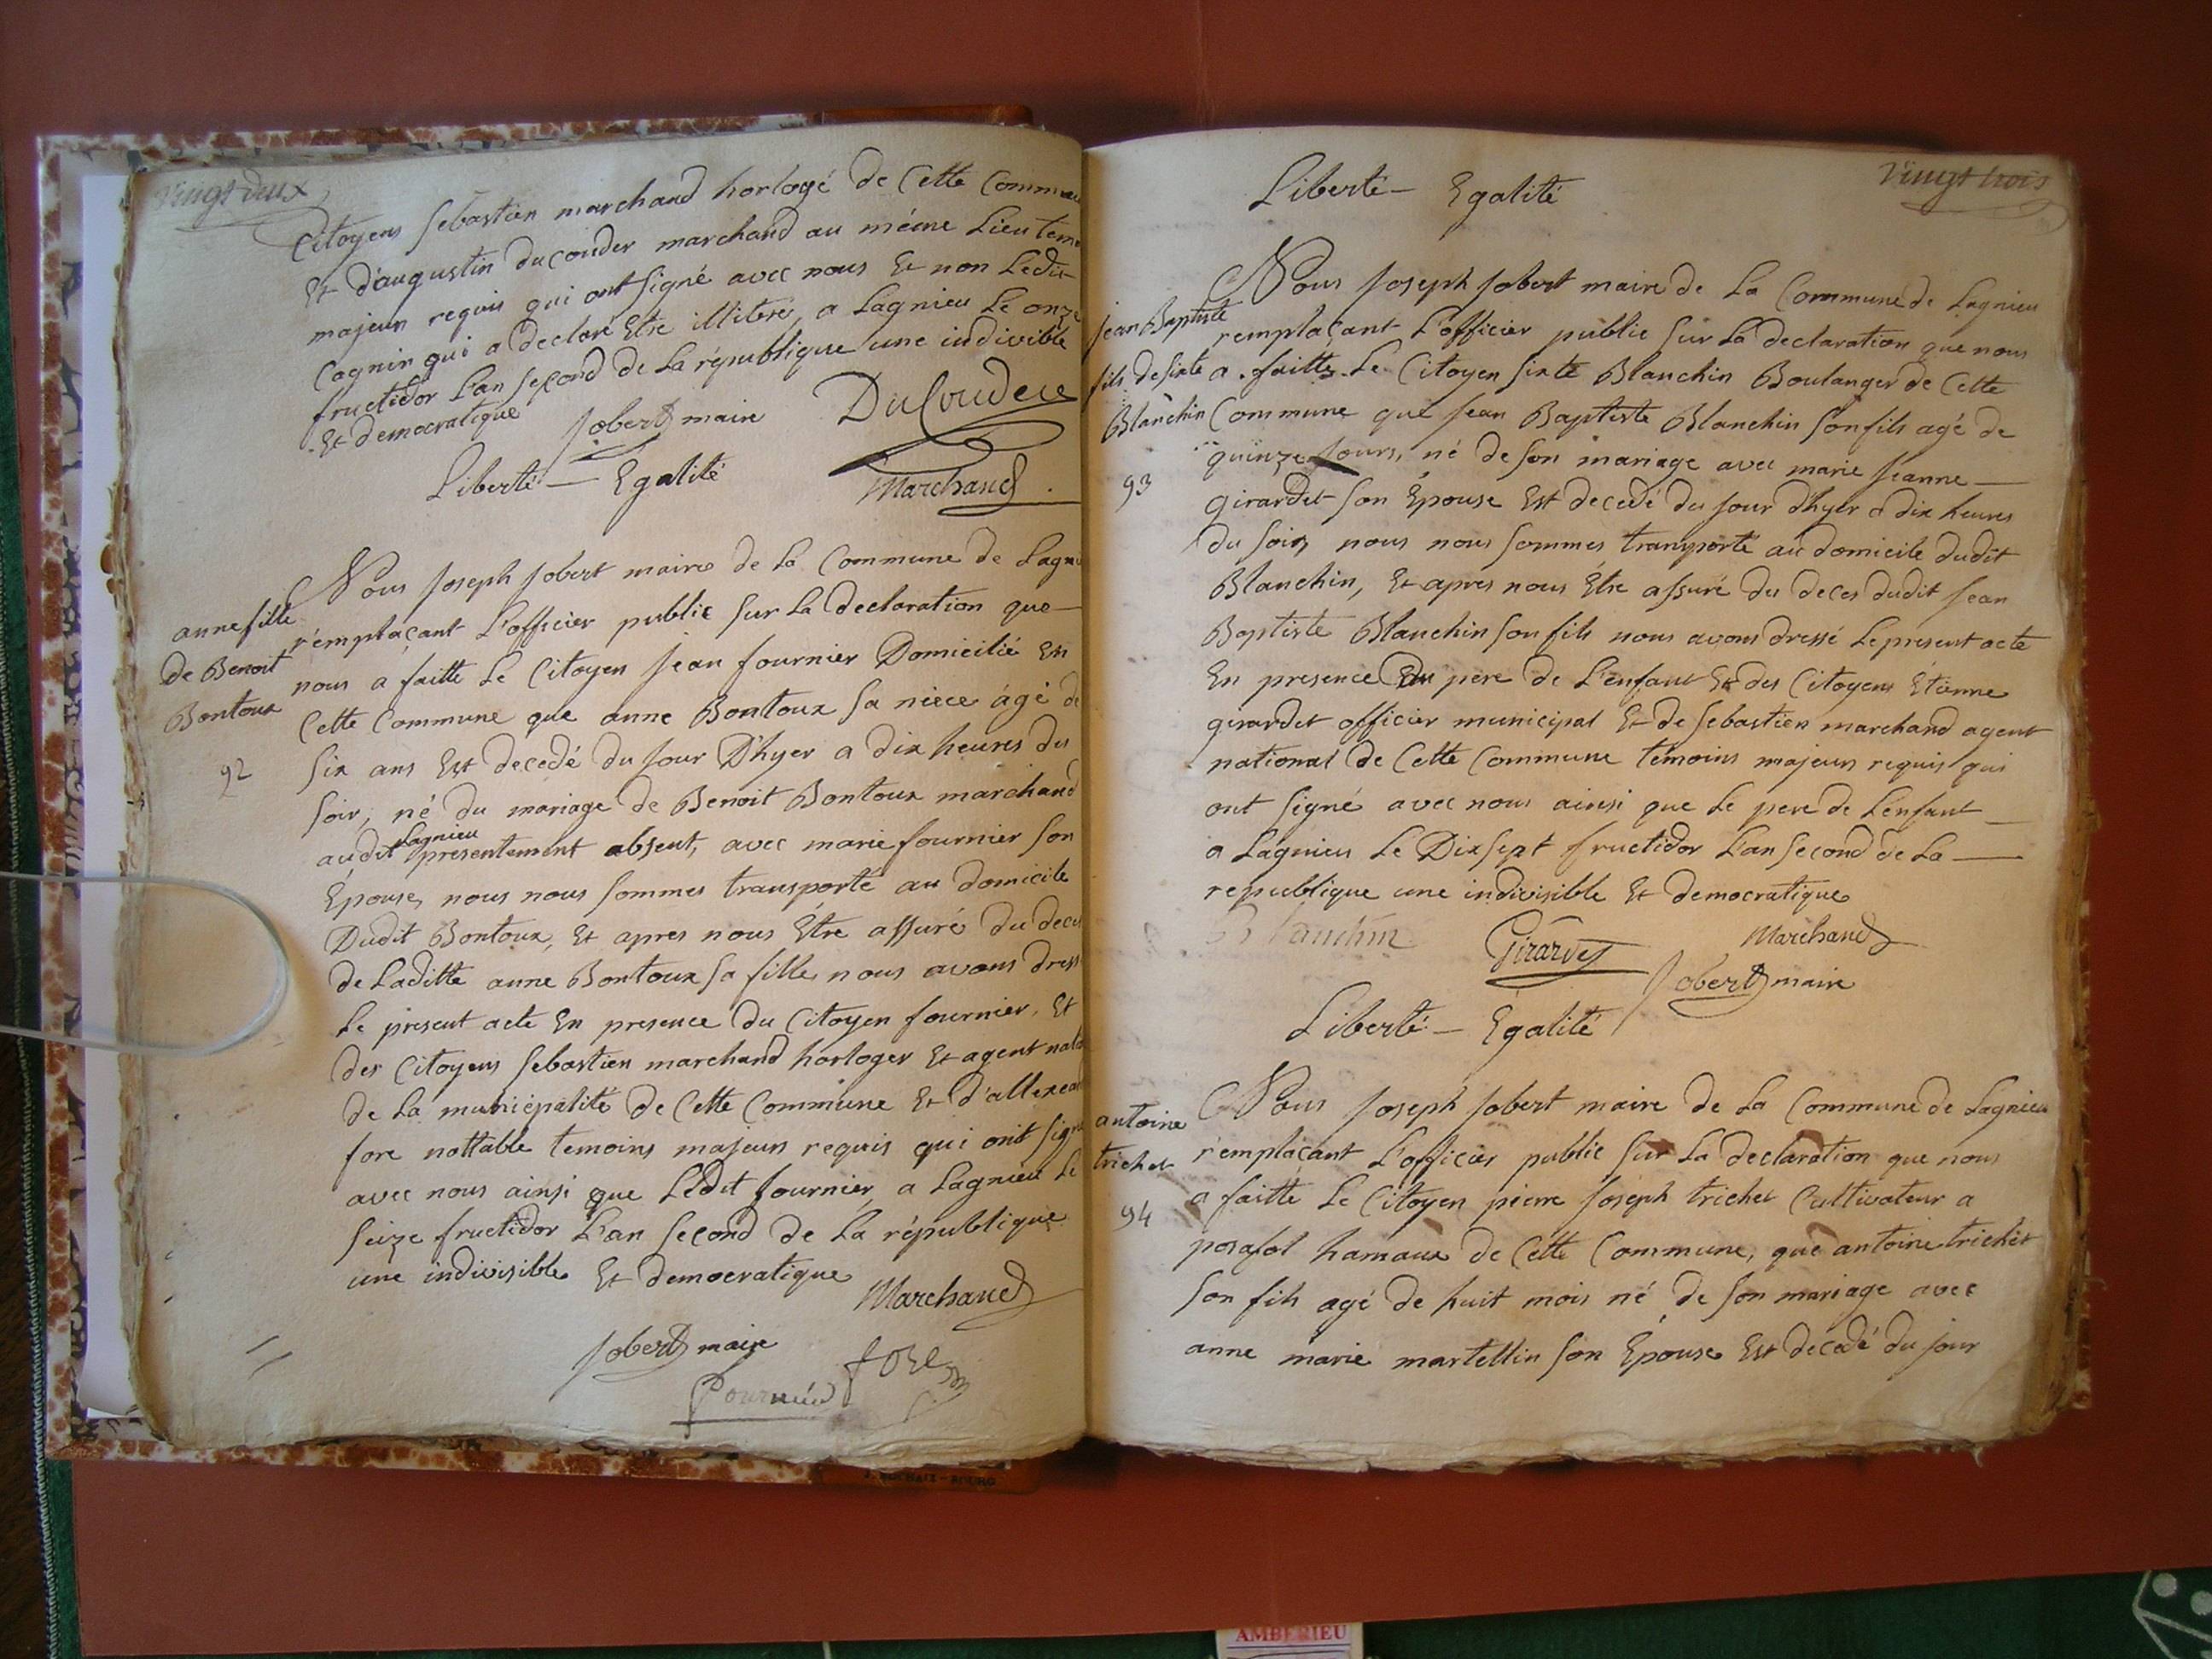 vingt deux
Citoyens Sebastien marchand horlogé de Cette Commune
Et d'augustin ducouder marchand au méme Lieu tem
majeurs requis qui ont signé avec nous Et non Ledit
Cagnin qui a declaré Etre illiteré, a Lagnieu Le onze
fructidor L'an second de La république une indivisible
Et democratique
Jobert maire
DuCoudere
Marchand
Liberté — Egalité
anne fille
de Benoit
Bontoux
92
Nous Joseph Jobert maire de La Commune de Lagni
rémplaçant L'officier public sur La declaration que —
nous a faitte Le Citoyen Jean fournier Domicilié En
Cette Commune que anne Bontoux sa niece agé de
six ans Est decedé du jour D'hyer a dix heures du
soir, né du mariage de Benoit Bontoux marchand
audit Lagnieu presentement absent, avec marie fournier son
Épouse, nous nous sommes transporté au domicile
Dudit Bontoux, Et apres nous Étre assuré du deces
de Laditte anne Bontoux sa fille nous avons dress
Le present acte En presence du Citoyen fournier, Et
des Citoyens Sebastien marchand horloger Et agent nat
de La municipalité de Cette Commune Et d'allexan
fore nottable temoins majeurs requis qui ont signé
avec nous ainsi que Ledit fournier, a Lagnieu Le
seize fructidor L'an second de La république
une indivisible Et democratique
Marchand
Jobert maire
fore
fournier
vingt trois
Liberté — Egalité
Jean Baptiste
fils de sixte
Blanchin
93
Nous Joseph Jobert maire de La Commune de Lagnieu
remplaçant L'officier public sur La declaration que nous
a faitte Le Citoyen sixte Blanchin Boulanger de Cette
Commune que Jean Baptiste Blanchin son fils agé de
quinze Jours, né de son mariage avec marie Jeanne —
girardet son Épouse Est decedé du jour d'hyer a dix heures
du soir, nous nous sommes transporté au domicile dudit
Blanchin, Et apres nous Étre assuré du deces dudit Jean
Baptiste Blanchin son fils nous avons dressé Le present acte
En presence Du pere de L'enfant Et des Citoyens Étienne
girardet officier municipal Et de Sebastien marchand agent
national de Cette Commune témoins majeurs requis qui
ont signé avec nous ainsi que Le pere de L'enfant —
a Lagnieu Le Dix sept fructidor L'an second de La —
republique une indivisible Et democratique
Blanchin
Girardet
Marchand
Jobert maire
Liberté — Egalité
antoine
trichet
94
Nous Joseph Jobert maire de La Commune de Lagnieu
rémplaçant L'officier public sur La declaration que nous
a faitte Le Citoyen pierre Joseph trichet Cultivateur a
posafol hamaux de Cette Commune, que antoine trichet
son fils agé de huit mois né de son mariage avec
anne marie martellin son Épouse Est décedé du jour
AMBERIEU